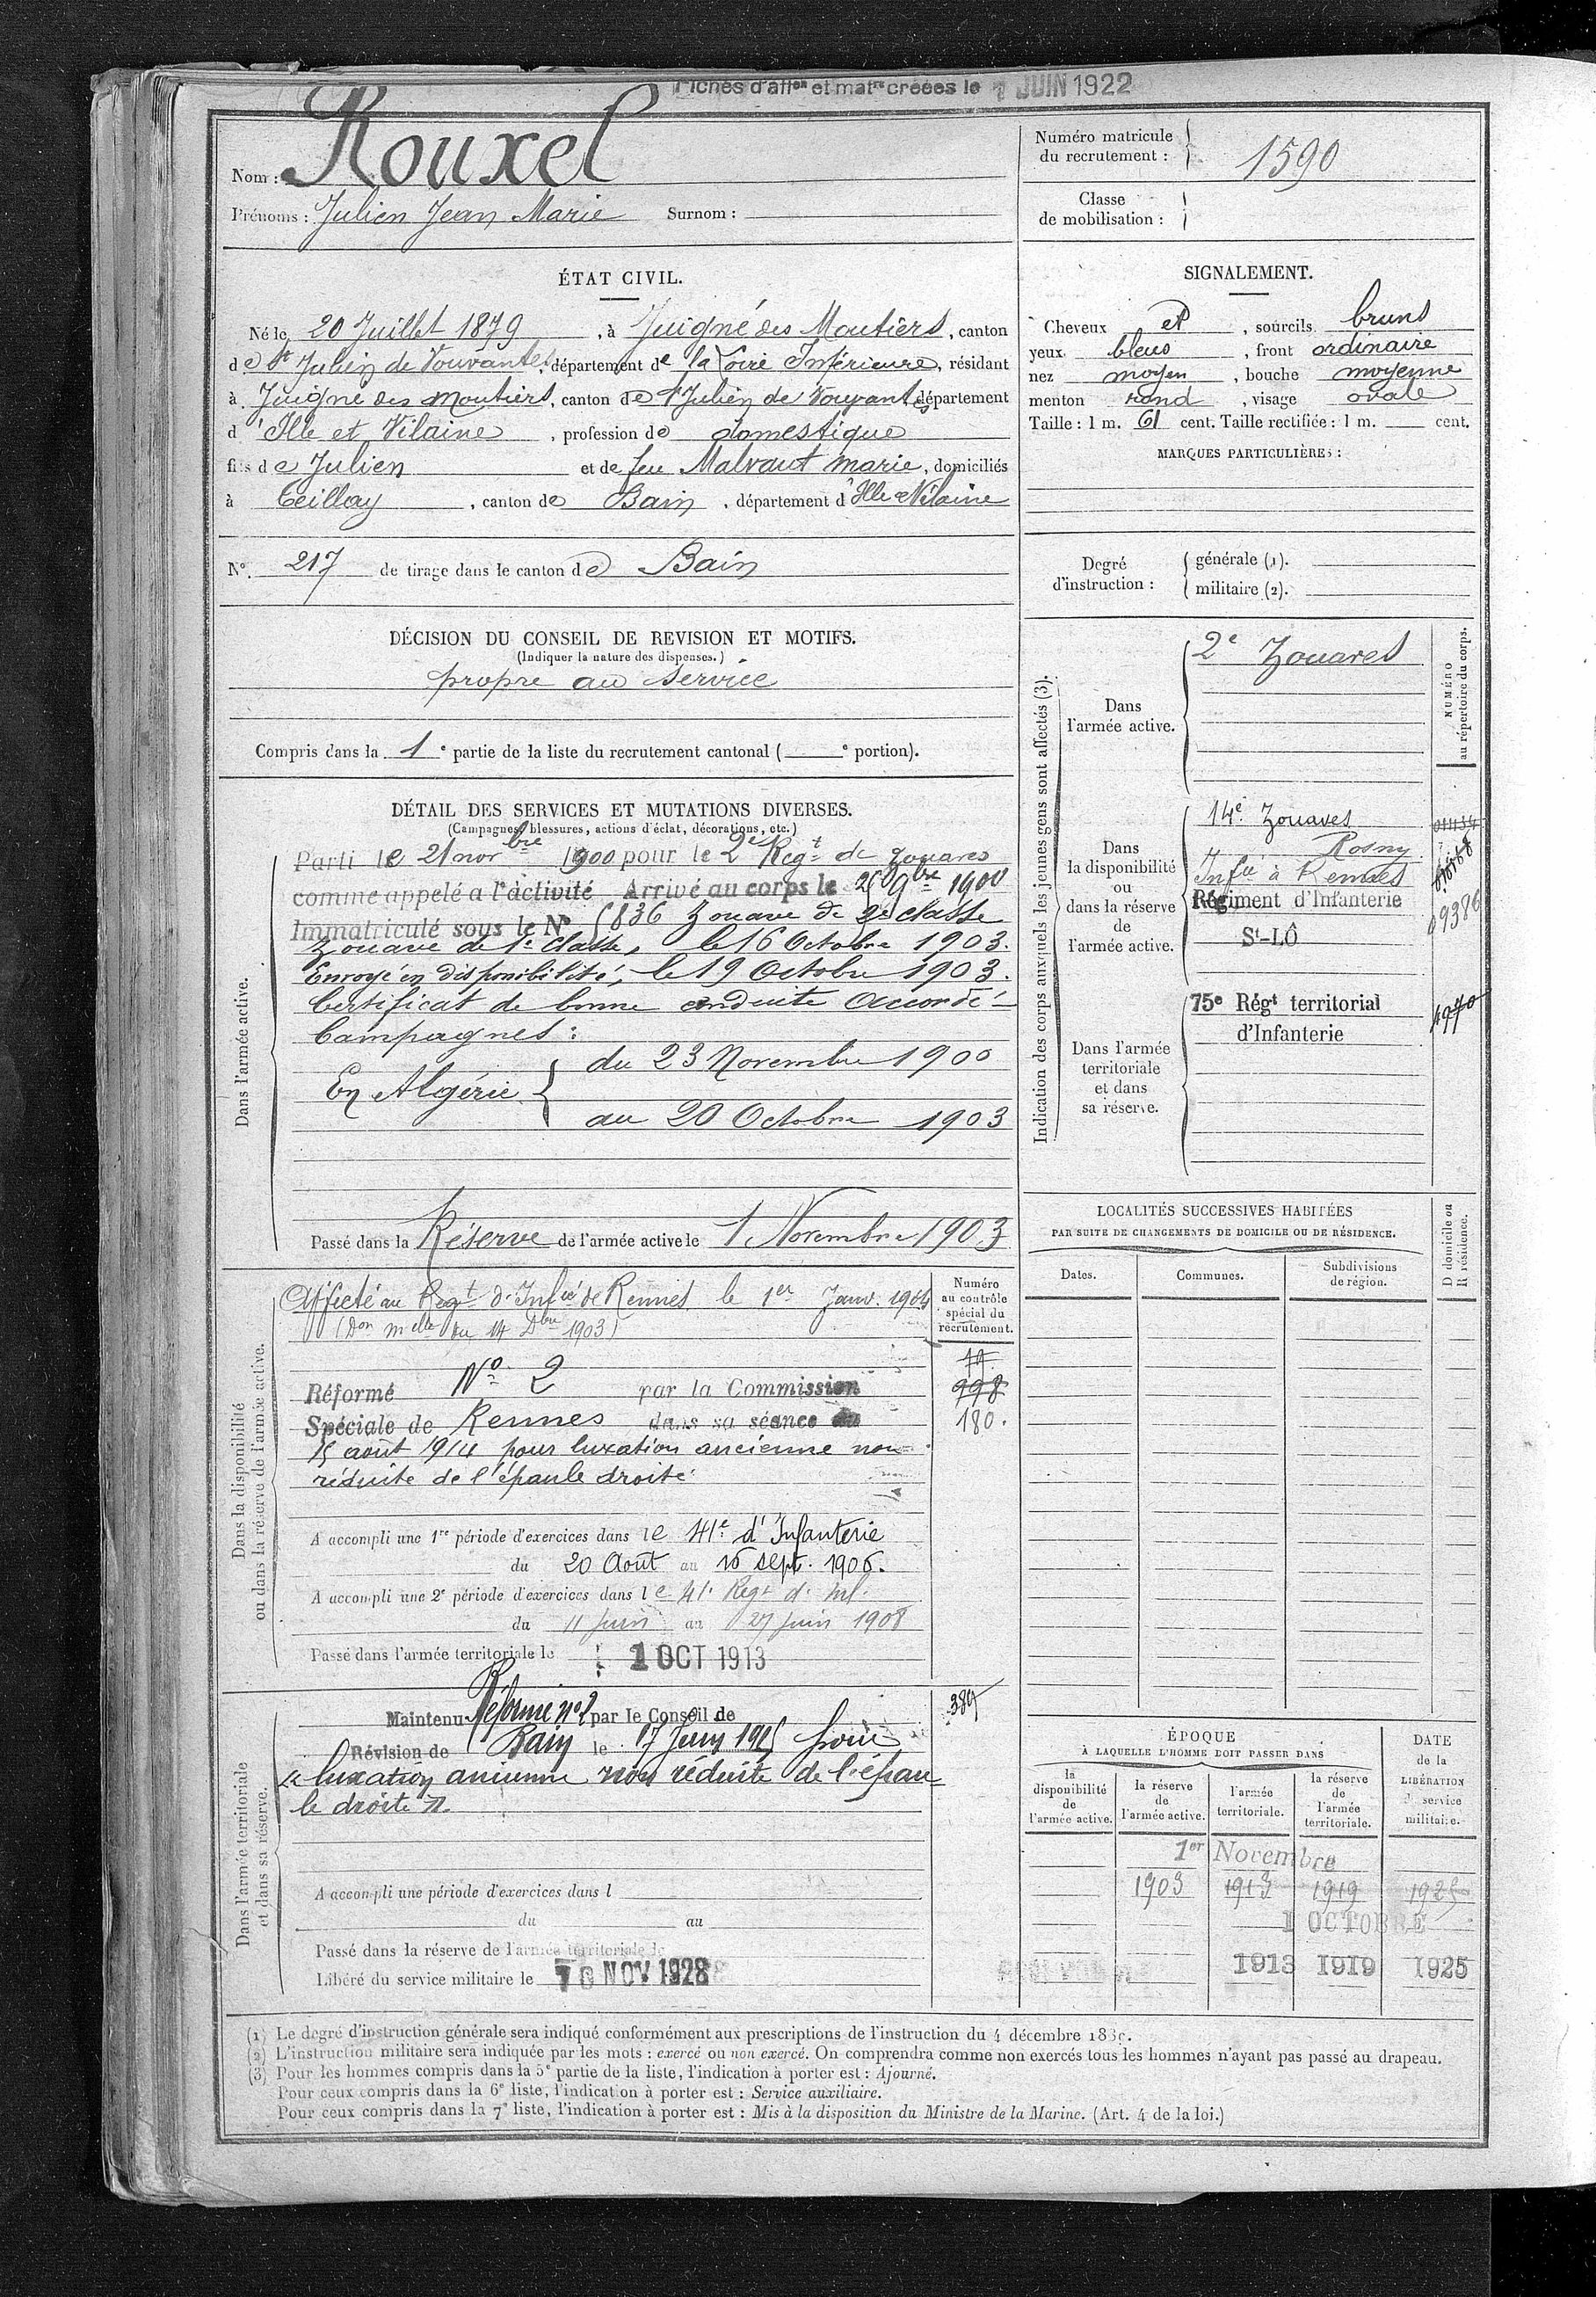 Fiches d'affon et matre créées le 1 JUIN 1922
Nom : Rouxel
Prénoms : Julien Jean Marie Surnom :
Numéro matricule du recrutement : 1590
Classe de mobilisation :
ÉTAT CIVIL.
Né le 20 Juillet 1879, à Juigné des Moutiers, canton
de St Julien de Vouvantes, département de la Loire Inférieure, résidant
à Juigné des Moutiers, canton de St Julien de Vouvantes, département
d'Ille et Vilaine, profession de domestique
fils de Julien et de feu Malvaut Marie, domiciliés
à Teillay, canton de Bain, département d'Ille et Vilaine
N° 217 de tirage dans le canton de Bain
SIGNALEMENT.
Cheveux et, sourcils bruns
yeux bleus, front ordinaire
nez moyen, bouche moyenne
menton rond, visage ovale
Taille : 1 m. 61 cent. Taille rectifiée : 1 m. cent.
MARQUES PARTICULIÈRES :
Degré d'instruction :
générale (1).
militaire (2).
DÉCISION DU CONSEIL DE REVISION ET MOTIFS.
(Indiquer la nature des dispenses.)
propre au service
Compris dans la 1e partie de la liste du recrutement cantonal ( e portion).
DÉTAIL DES SERVICES ET MUTATIONS DIVERSES.
(Campagnes, blessures, actions d'éclat, décorations, etc.)
Dans l'armée active.
Parti le 21 novbre 1900 pour le 2e Regt de Zouaves
comme appelé a l'activité Arrivé au corps le 9bre 1900
Immatriculé sous le No Zouave de 2e classe
Zouave de 1e Classe, le 16 Octobre 1903.
Envoyé en disponibilité, le 19 Octobre 1903.
Certificat de bonne conduite Accordé
Campagnes :
En Algérie
du 23 Novembre 1900
au 20 Octobre 1903
Passé dans la Réserve de l'armée active le 1 Novembre 1903
Indication des corps auxquels les jeunes gens sont affectés (3).
NUMÉRO au répertoire du corps.
Dans l'armée active.
2e Zouaves
Dans la disponibilité ou dans la réserve de l'armée active.
14e Zouaves
Rosny
Infie à Rennes
Régiment d'Infanterie
St-LÔ
09386
Dans l'armée territoriale et dans sa réserve.
75e Régt territorial
d'Infanterie
4970
LOCALITÉS SUCCESSIVES HABITÉES
PAR SUITE DE CHANGEMENTS DE DOMICILE OU DE RÉSIDENCE.
Dates.
Communes.
Subdivisions de région.
D domicile ou R résidence.
Dans la disponibilité ou dans la réserve de l'armée active.
Affecté au Regt d'Infie de Rennes le 1er Janv. 1904
(Don melle du 14 Dbre 1903)
Numéro au contrôle spécial du recrutement.
998
180.
Réformé No 2 par la Commission
Spéciale de Rennes dans sa séance du
15 aout 1914 pour luxation ancienne non
réduite de l'épaule droite
A accompli une 1re période d'exercices dans le 41e d'Infanterie
du 20 Août au 16 sept. 1906.
A accompli une 2e période d'exercices dans le 41e Regt d'Inf.
du 11 Juin au 27 juin 1908
Passé dans l'armée territoriale le 1 OCT 1913
Dans l'armée territoriale et dans sa réserve.
Maintenu Réformé no 2 par le Conseil de
Révision de Bain le 17 Juin 1915 pour
"luxation ancienne non réduite de l'épau
le droite".
389
A accompli une période d'exercices dans l
du au
Passé dans la réserve de l'armée territoriale le
Libéré du service militaire le 10 NOV 1928
ÉPOQUE
À LAQUELLE L'HOMME DOIT PASSER DANS
la disponibilité de l'armée active.
la réserve de l'armée active.
l'armée territoriale.
la réserve de l'armée territoriale.
DATE de la LIBÉRATION du service militaire.
1er Novembre
1903 1913 1919 1925
1 OCTOBRE
1913 1919 1925
(1) Le degré d'instruction générale sera indiqué conformément aux prescriptions de l'instruction du 4 décembre 1889.
(2) L'instruction militaire sera indiquée par les mots : exercé ou non exercé. On comprendra comme non exercés tous les hommes n'ayant pas passé au drapeau.
(3) Pour les hommes compris dans la 5e partie de la liste, l'indication à porter est : Ajourné.
Pour ceux compris dans la 6e liste, l'indication à porter est : Service auxiliaire.
Pour ceux compris dans la 7e liste, l'indication à porter est : Mis à la disposition du Ministre de la Marine. (Art. 4 de la loi.)